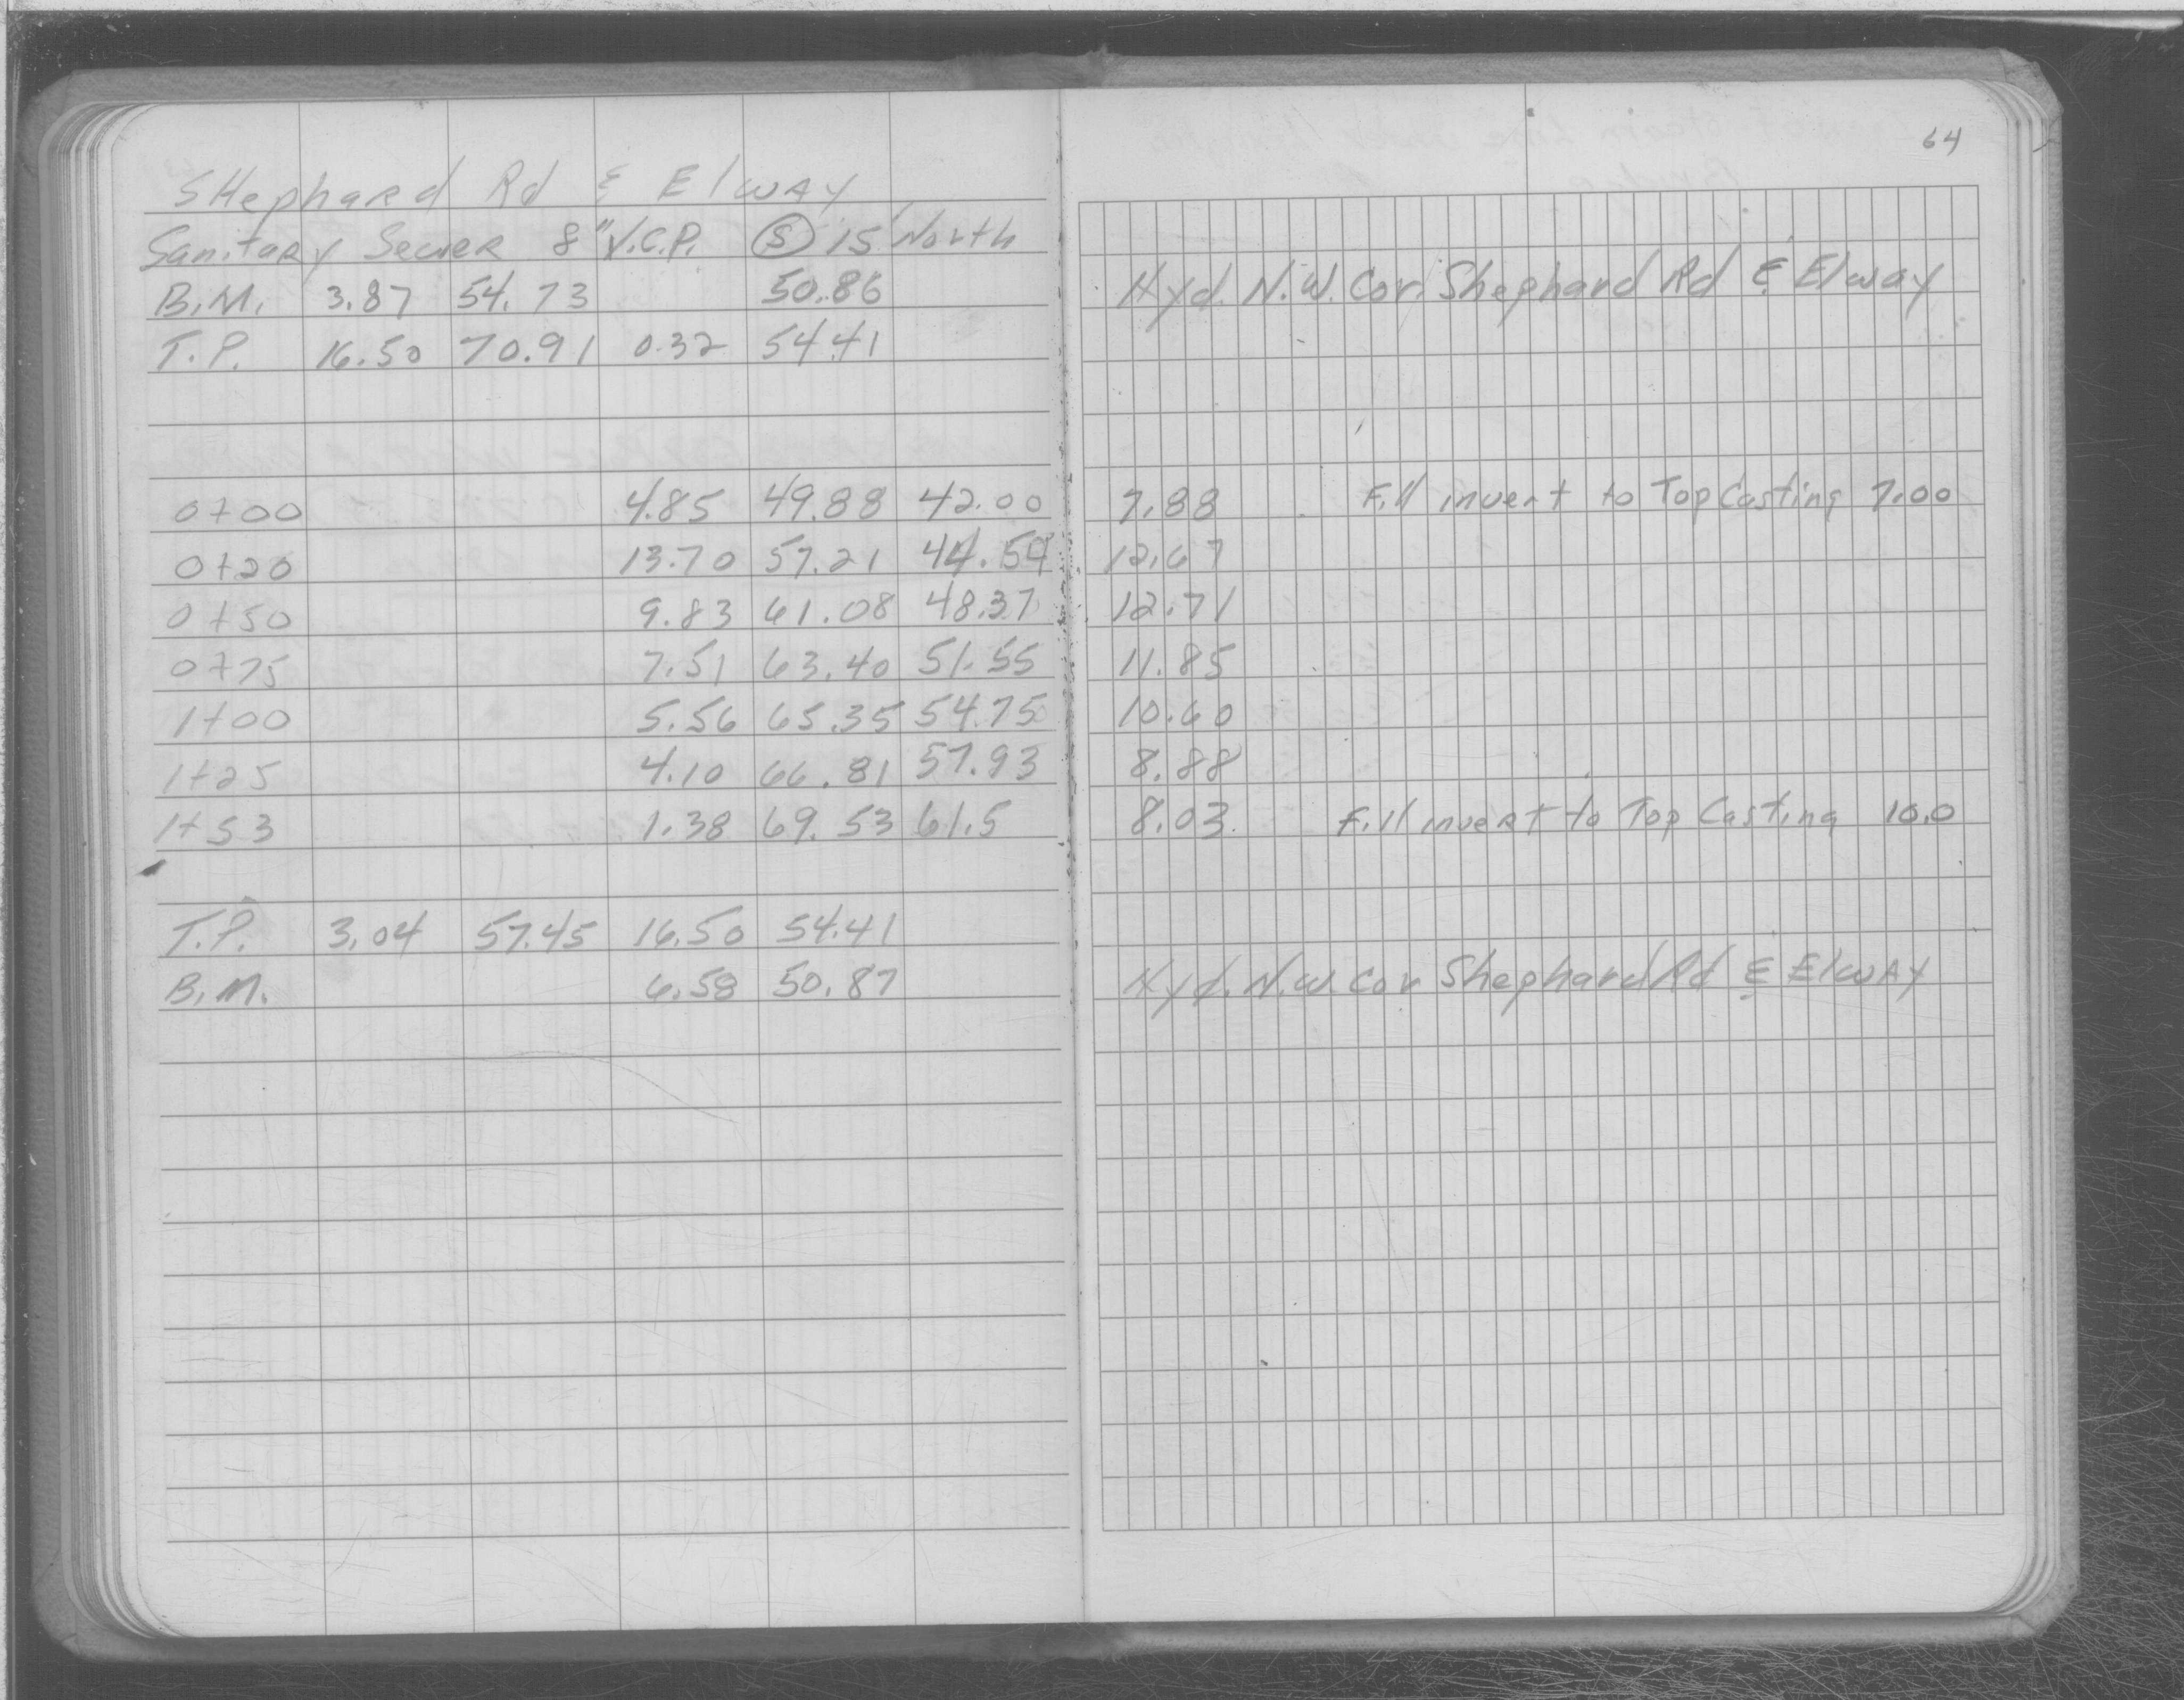 64
SHephard Rd & Elway
Sanitary Sewer 8" V.C.P. (S) 15' North
B.M. 3.87 54.73 50.86 Hyd. N.W. Cor. Shephard Rd & Elway
T.P. 16.50 70.91 0.32 54.41
0+00 4.85 49.88 42.00 7.88 Fill invert to Top Casting 7.00
0+20 13.70 57.21 44.54 12.67
0+50 9.83 61.08 48.37 12.71
0+75 7.51 63.40 51.55 11.85
1+00 5.56 65.35 54.75 10.60
1+25 4.10 66.81 57.93 8.88
1+53 1.38 69.53 61.5 8.03 Fill invert to Top Casting 10.0
T.P. 3.04 57.45 16.50 54.41
B.M. 6.58 50.87 Hyd. N.W. Cor Shephard Rd & Elway